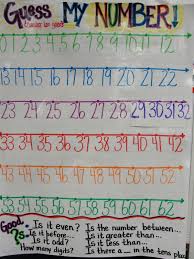 Guess MY NUMBER!
0 1 2 3 4 5 6 7 8 9 10 11 12
13 14 15 16 17 18 19 20 21 22
23 24 25 26 27 28 29 30 31 32
33 34 35 36 37 38 39 40 41 42
43 44 45 46 47 48 49 50 51 52
53 54 55 56 57 58 59 60 61 62
Good ?s
Is it even?
Is it before...
Is it odd?
How many digits?
Is the number between...
Is it greater than...
Is it less than...
Is there a ... in the tens place?